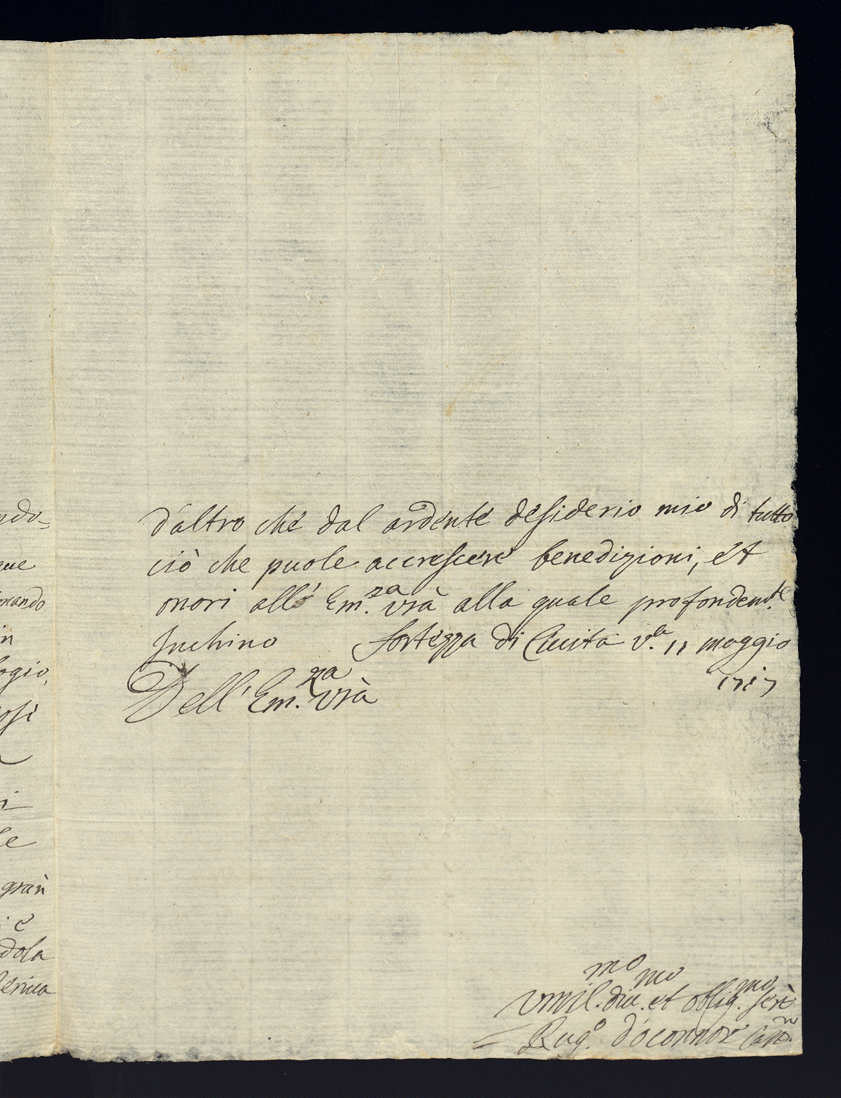 ndo=
que
mando
in
logio,
osi
i
le
gran
: è
dola
d'altro ché dal ardente desiderio mio di tutto
ciò che puole accrescere benedizioni, et
onori all' Em.za Vrà alla quale profondent.te
Inchino fortezza di Ciuita V.a 11 maggio
1717
Dell' Em.za Vrà
Vmil.mo diu.mo et oblig.mo serē
Rug.o d'oconnor Cap.n